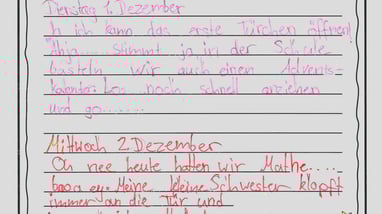 Dienstag 1. Dezember
h ich kann das erste Türchen öffnen!
Ahja..... Stimmt ja in der Schule
basteln wir auch einen Advents=
kalender. Los... noch schnell anziehen
und go........
Mittwoch 2. Dezember
Oh nee heute hatten wir Mathe....
booa ey. Meine kleine Schwester klopft
immer an die Tür und